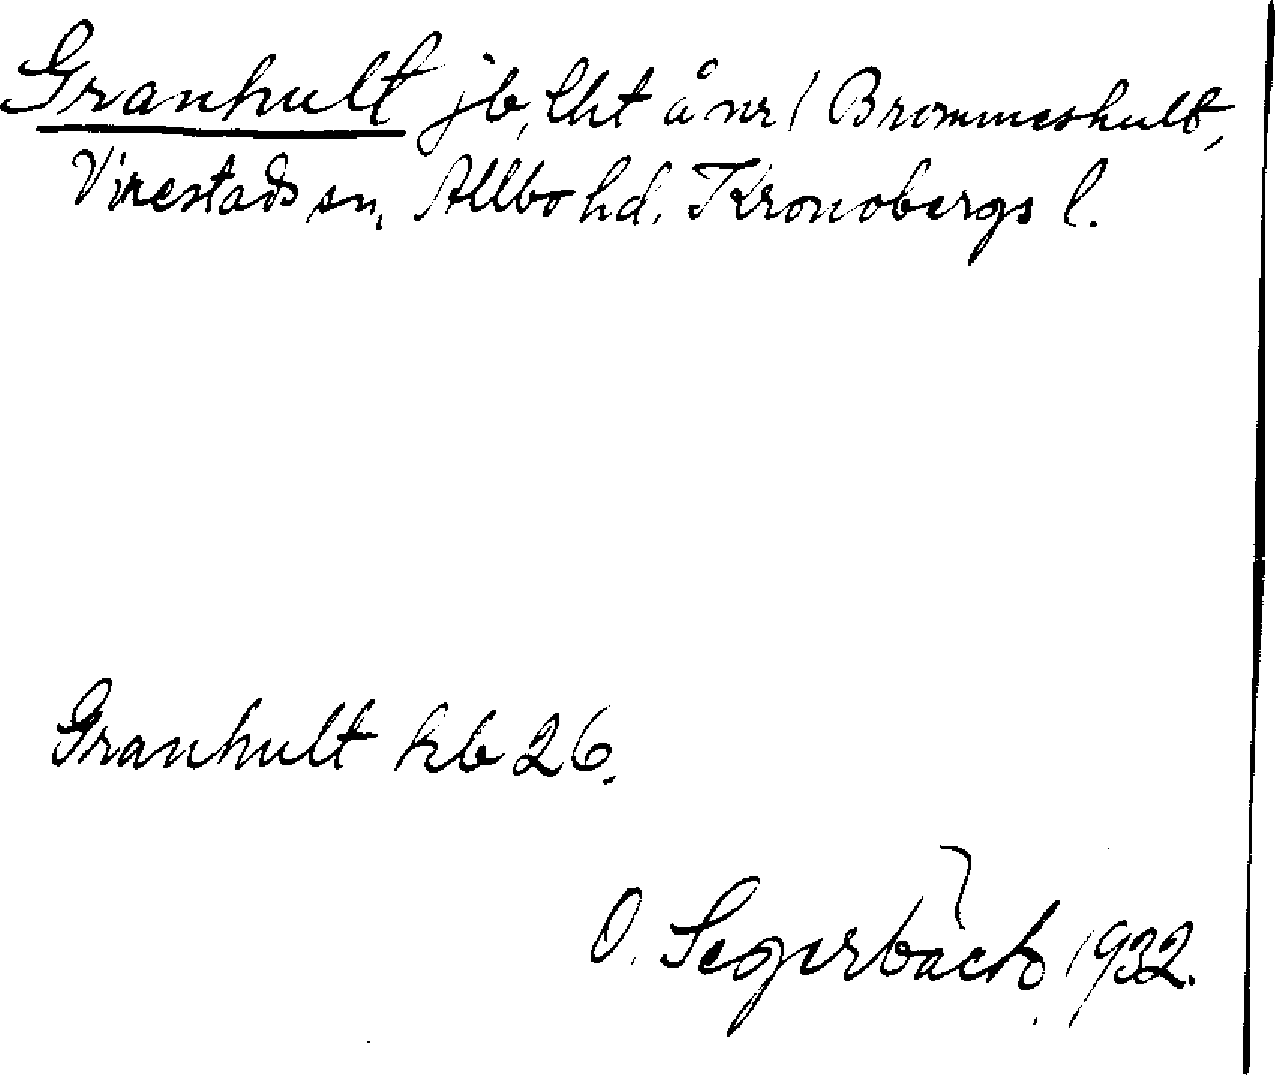 Granhult jb, lht å nr 1 Brommeshult,
Virestads sn, Allbo hd. Kronobergs l.
Granhult kb 26.
O. Segerbäck, 1932.